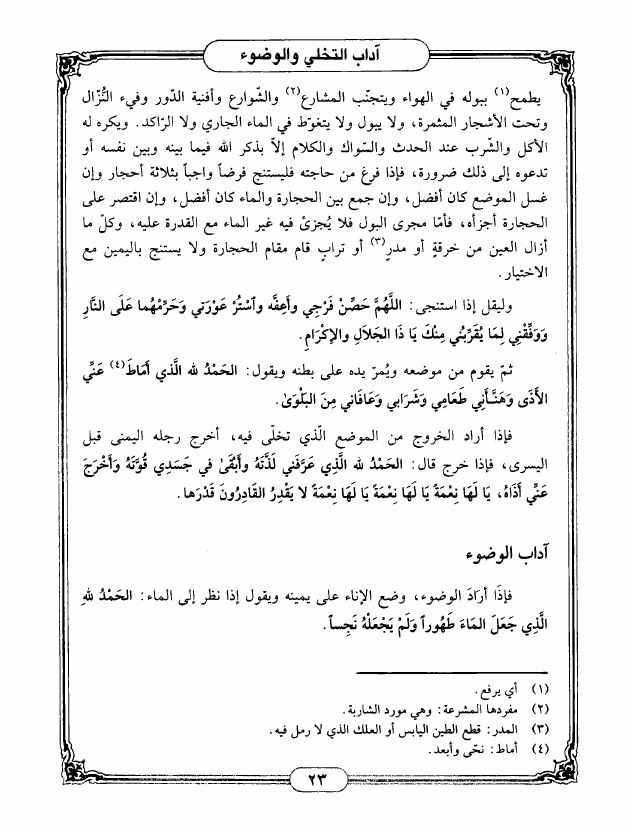 آداب التخلي والوضوء
يطمح(١) ببوله في الهواء ويتجنّب المشارع(٢) والشّوارع وأفنية الدّور وفيء النُّزال
وتحت الأشجار المثمرة، ولا يبول ولا يتغوّط في الماء الجاري ولا الرّاكد. ويكره له
الأكل والشّرب عند الحدث والسّواك والكلام إلاّ بذكر الله فيما بينه وبين نفسه أو
تدعوه إلى ذلك ضرورة، فإذا فرغ من حاجته فليستنج فرضاً واجباً بثلاثة أحجار وإن
غسل الموضع كان أفضل، وإن جمع بين الحجارة والماء كان أفضل، وإن اقتصر على
الحجارة أجزأه، فأمّا مجرى البول فلا يُجزىْ فيه غير الماء مع القدرة عليه، وكلّ ما
أزال العين من خرقةٍ أو مدرٍ(٣) أو ترابٍ قام مقام الحجارة ولا يستنج باليمين مع
الاختيار.
وليقل إذا استنجى: اللَّهُمَّ حَصِّنْ فَرْجِي وأعِفَّه واسْتُرْ عَوْرَتي وَحَرِّمْهُما عَلَى النَّارِ
وَوَفِّقْنِي لِمَا يُقَرِّبُنِي مِنْكَ يَا ذَا الجَلالِ والإكْرَامِ.
ثمّ يقوم من موضعه ويُمرّ يده على بطنه ويقول: الحَمْدُ لله الَّذي أمَاطَ(٤) عَنِّي
الأذَى وَهَنَّأنِي طَعَامِي وَشَرَابي وَعَافَاني مِنَ البَلْوَىٰ.
فإذا أراد الخروج من الموضع الّذي تخلّى فيه، أخرج رجله اليمنى قبل
اليسرى، فإذا خرج قال: الحَمْدُ لله الَّذِي عَرَّفَني لَذَّتَهُ وأَبْقَىٰ في جَسَدِي قُوَّتَهُ وَأخْرَجَ
عَنِّي أذَاهُ، يَا لَهَا نِعْمَةً يَا لَهَا نِعْمَةً يَا لَهَا نِعْمَةً لا يَقْدِرُ القَادِرُونَ قَدْرَها.
آداب الوضوء
فإذَا أرَادَ الوضوء، وضع الإناء على يمينه ويقول إذا نظر إلى الماء: الحَمْدُ للهِ
الَّذِي جَعَلَ المَاءَ طَهُوراً وَلَمْ يَجْعَلْهُ نَجِساً.
(١) أي يرفع.
(٢) مفردها المشرعة: وهي مورد الشاربة.
(٣) المدر: قطع الطين اليابس أو العلك الذي لا رمل فيه.
(٤) أماط: نحّى وأبعد.
٢٣